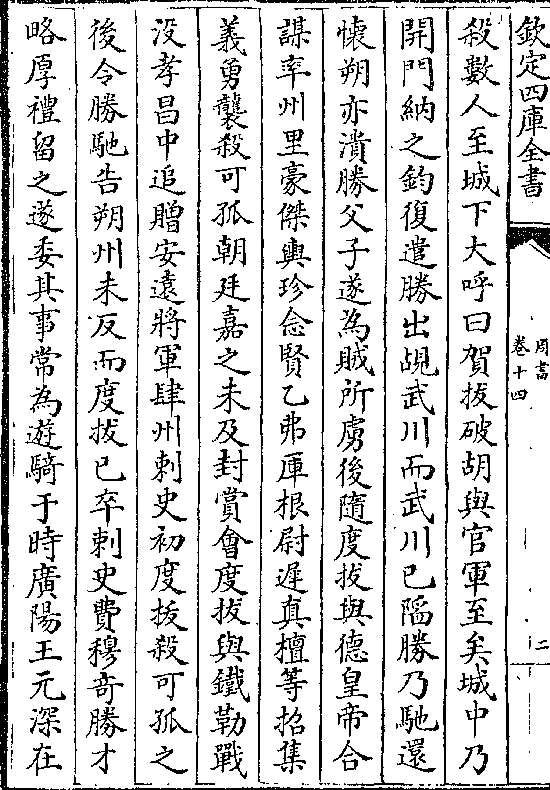 欽定四庫全書
周書
卷十四
二
殺數人至城下大呼曰賀拔破胡與官軍至矣城中乃
開門納之鈞復遣勝出覘武川而武川已陷勝乃馳還
懐朔亦潰勝父子遂為賊所虜後隨度拔與德皇帝合
謀率州里豪傑輿珍念賢乙弗庫根尉遲真檀等招集
義勇襲殺可孤朝廷嘉之未及封賞會度拔與鐵勒戰
没孝昌中追贈安遠將軍肆州刺史初度拔殺可孤之
後令勝馳告朔州未反而度拔已卒刺史費穆竒勝才
略厚禮留之遂委其事常為遊騎于時廣陽王元深在